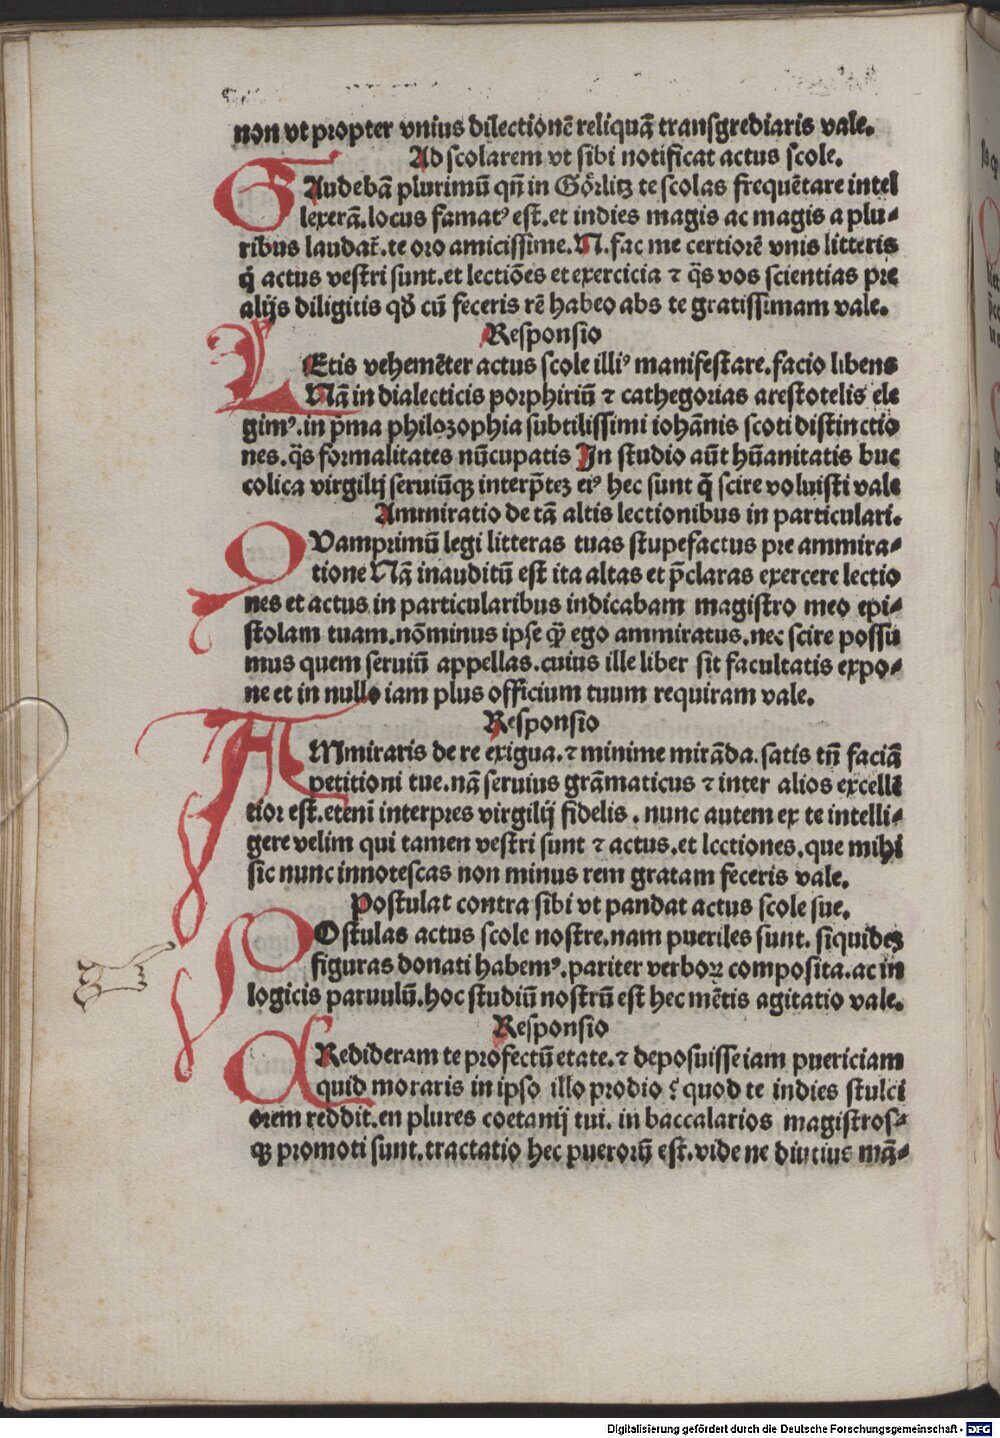 non vt propter vnius dilectionē reliquā transgrediaris vale.
Ad scolarem vt sibi notificat actus scole.
GAudebā plurimū qñ in Görlitz te scolas frequētare intel
lexerā.locus famatꝰ est.et indies magis ac magis a plu-
ribus laudat̄.te oro amicissime.N.fac me certiorē vnis litteris
q̄ actus vestri sunt.et lectiōes et exercicia ⁊ q̄s vos scientias pre
alijs diligitis qđ cū feceris rē habeo abs te gratissimam vale.
Responsio
LEtis vehemēter actus scole illiꝰ manifestare.facio libens
Nā in dialecticis porphiriū ⁊ cathegorias arestotelis ele
gimꝰ.in p̄ma philozophia subtilissimi iohānis scoti distinctio
nes.q̄s formalitates nūcupatis In studio aūt hūanitatis buc
colica virgilij seruiūqꝫ interp̄tez eiꝰ hec sunt q̄ scire voluisti vale
Ammiratio de tā altis lectionibus in particulari.
QVamprimū legi litteras tuas stupefactus pre ammira-
tione Nā inauditū est ita altas et p̄claras exercere lectio
nes et actus in particularibus indicabam magistro meo epi-
stolam tuam.nōminus ipse qꝫ̄ ego ammiratus.nec scire possu
mus quem seruiū appellas.cuius ille liber sit facultatis expo-
ne et in nullo iam plus officium tuum requiram vale.
Responsio
AMmiraris de re exigua.⁊ minime mirāda.satis tñ faciā
petitioni tue.nā seruius grāmaticus ⁊ inter alios excellē
tior est.etenī interpres virgilij fidelis.nunc autem ex te intelli-
gere velim qui tamen vestri sunt ⁊ actus.et lectiones.que mihi
sic nunc innotescas non minus rem gratam feceris vale.
Postulat contra sibi vt pandat actus scole sue.
POstulas actus scole nostre.nam pueriles sunt. siquidez
figuras donati habemꝰ.pariter verboꝝ composita.ac in
logicis paruulū.hoc studiū nostrū est hec mētis agitatio vale.
Responsio
CRedideram te profectū etate.⁊ deposuisse iam puericiam
quid moraris in ipso illo prodio ? quod te indies stulci
orem reddit.en plures coetanij tui. in baccalarios magistros-
qꝫ promoti sunt.tractatio hec puerorū est.vide ne diutius mā-
Digitalisierung gefördert durch die Deutsche Forschungsgemeinschaft - DFG